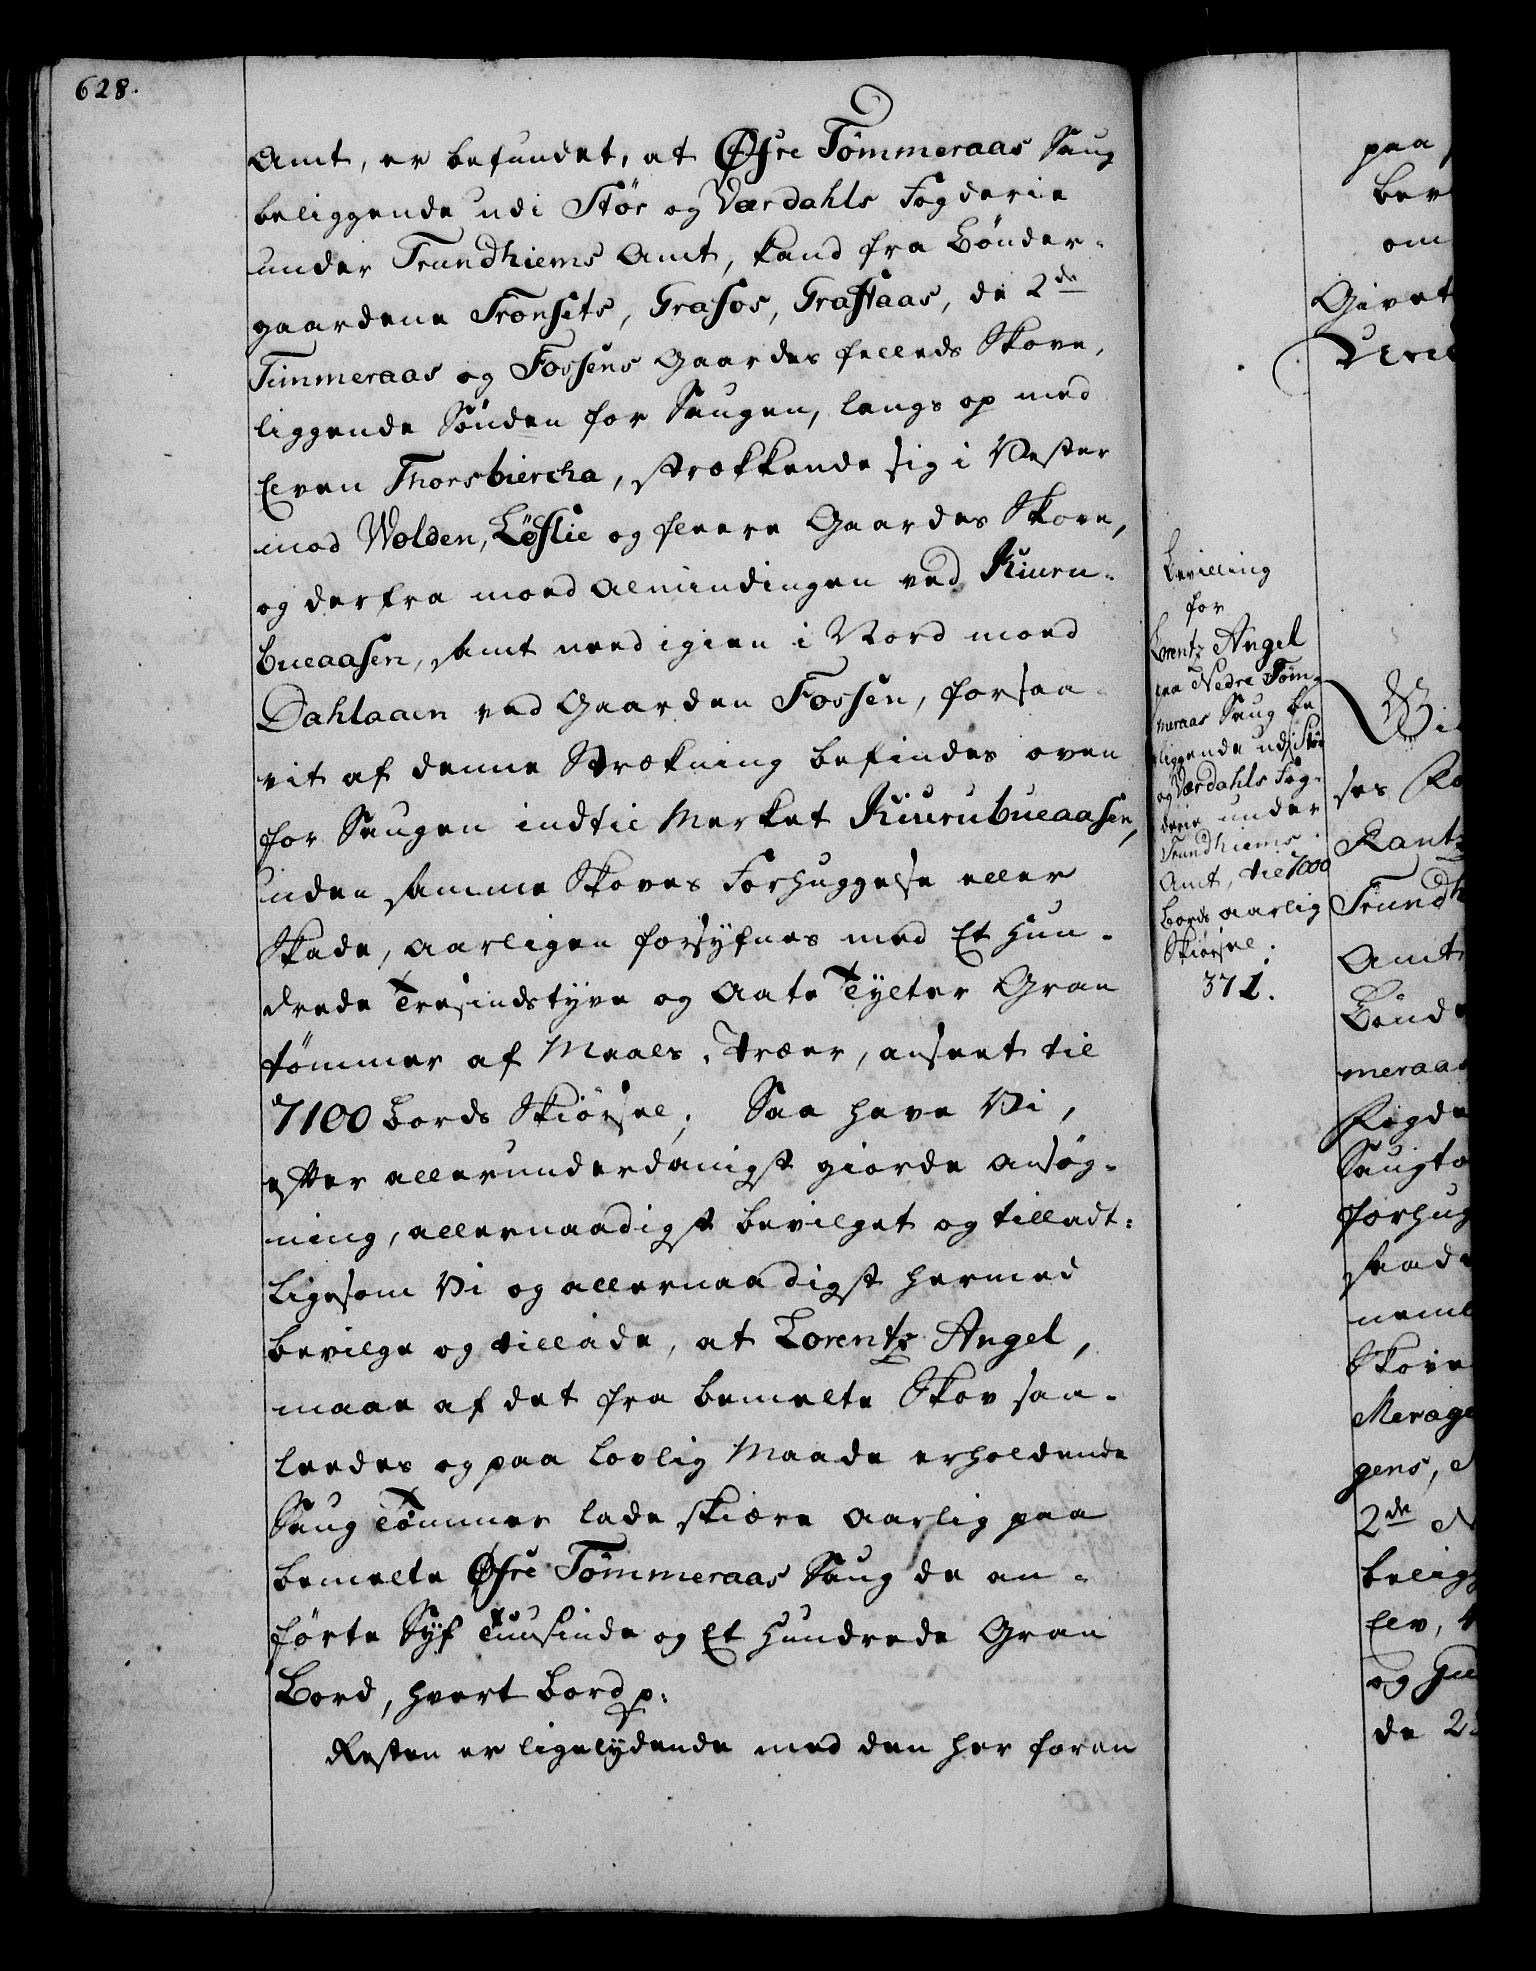 628.
Amt, er befundet, at Øfre Tömmeraas Saug
beliggende udi Stör og Værdahls Fogderie
under Trundhiems Amt, kand fra Bönder-
gaardene Trönsets, Grasos, Graftaas, de 2de
Timmeraas og Fossens Gaardes fælleds Skove,
liggende Sönden for Saugen, langs op med
Elven Thorsbiercha, strækkende sig i Vester
mod Wolden, Löflie og fleere Gaardes Skove,
og derfra moed Almindingen ved Kiuru-
bueaasen, samt need igien i Nord moed
Dahlaaen ved Gaarden Fossen, forsaa-
vit af denne Strækning befindes oven
for Saugen indtil Merket Kiurubueaasen,
uden samme Skoves Forhuggelse eller
Skade, aarligen forsyfnes med Et Hun-
drede Tresindstyve og Aate Tylter Gran
tömmer af Maals-Træer, anseet til
7100 Bords Skiörsel; Saa have Vi,
efter allerunderdanigst giorde Ansög-
ning, allernaadigst bevilget og tilladt:
Ligesom Vi og allernaadigst hermed
bevilge og tillade, at Lorentz Angel,
maae af det fra bemelte Skov saa-
leedes og paa lovlig Maade erholdende
Saug Tömmer lade skiære Aarlig paa
bemelte Øfre Tömmeraas Saug de an-
förte Syf Tuusinde og Et Hundrede Gran
Bord, hvert Bord p:
Resten er ligelydende med den her foran
Bevilling
for
Lorentz Angel
paa Nedre Töm-
meraas Saug be
liggende udi Stör
og Værdahls Fog-
derie under
Trundhiems
Amt, til 7000
Bords aarlig
Skiörsel.
371.
paa
bev
om
Givet
Vi
ses
Kantz
Trundh
Amt
Bönde
meraas
Fogde
Saugtö
forhug
skade
neml
Skove
Merage
gens,
2de
belig
Elv,
og
de 2